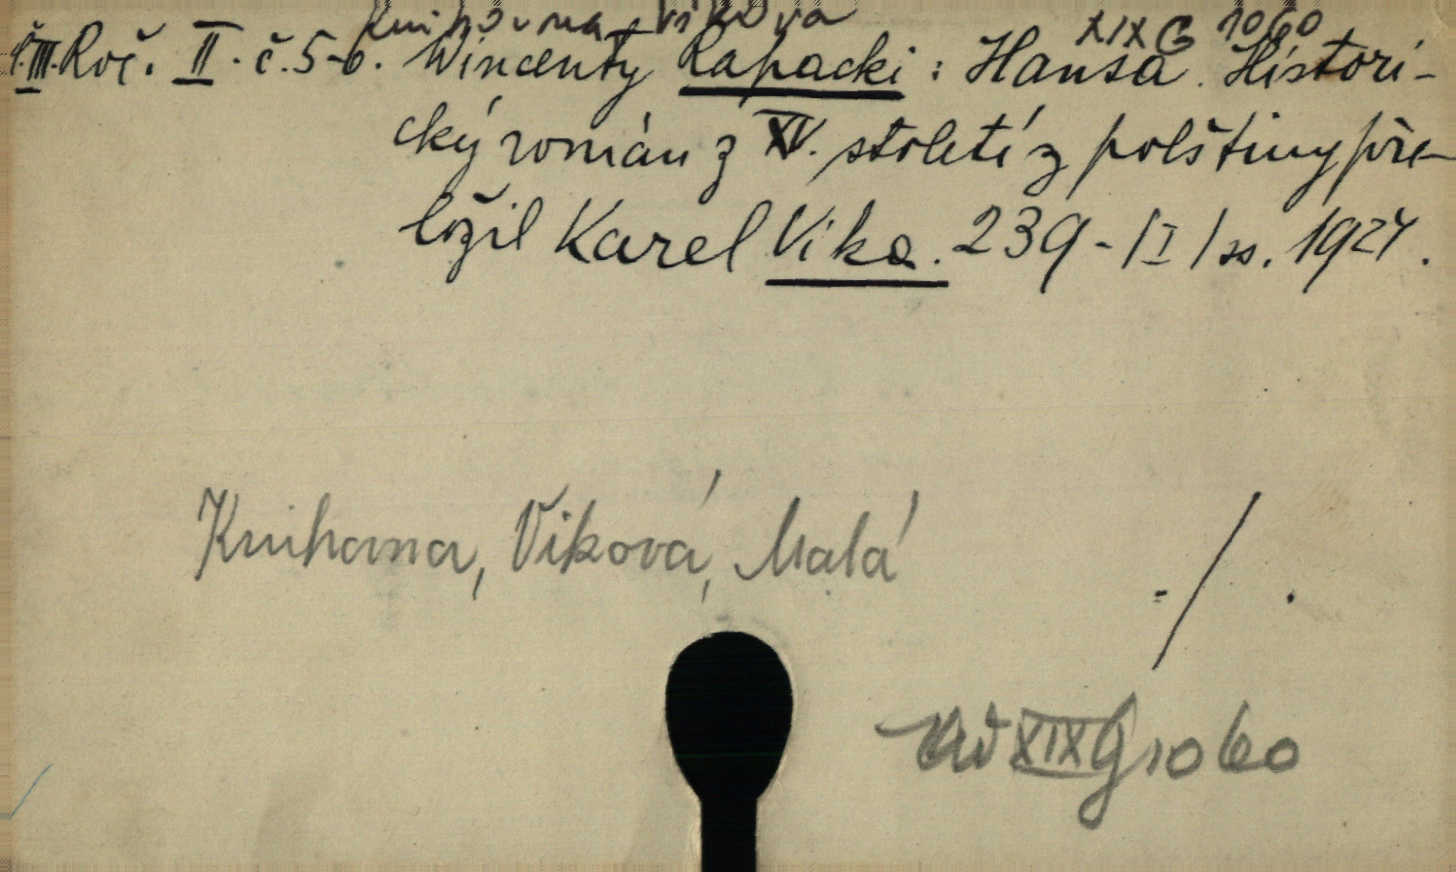 Knihovna Vikova XIX G 1060
Č.III. Roč. II. č. 5-6. Wincenty Rapacki: Hansa. Histori-
cký román z XV. století z polštiny pře-
ložil Karel Vika. 239-/I/ ss. 1924.
Knihovna, Viková, Malá
XIX G 1060